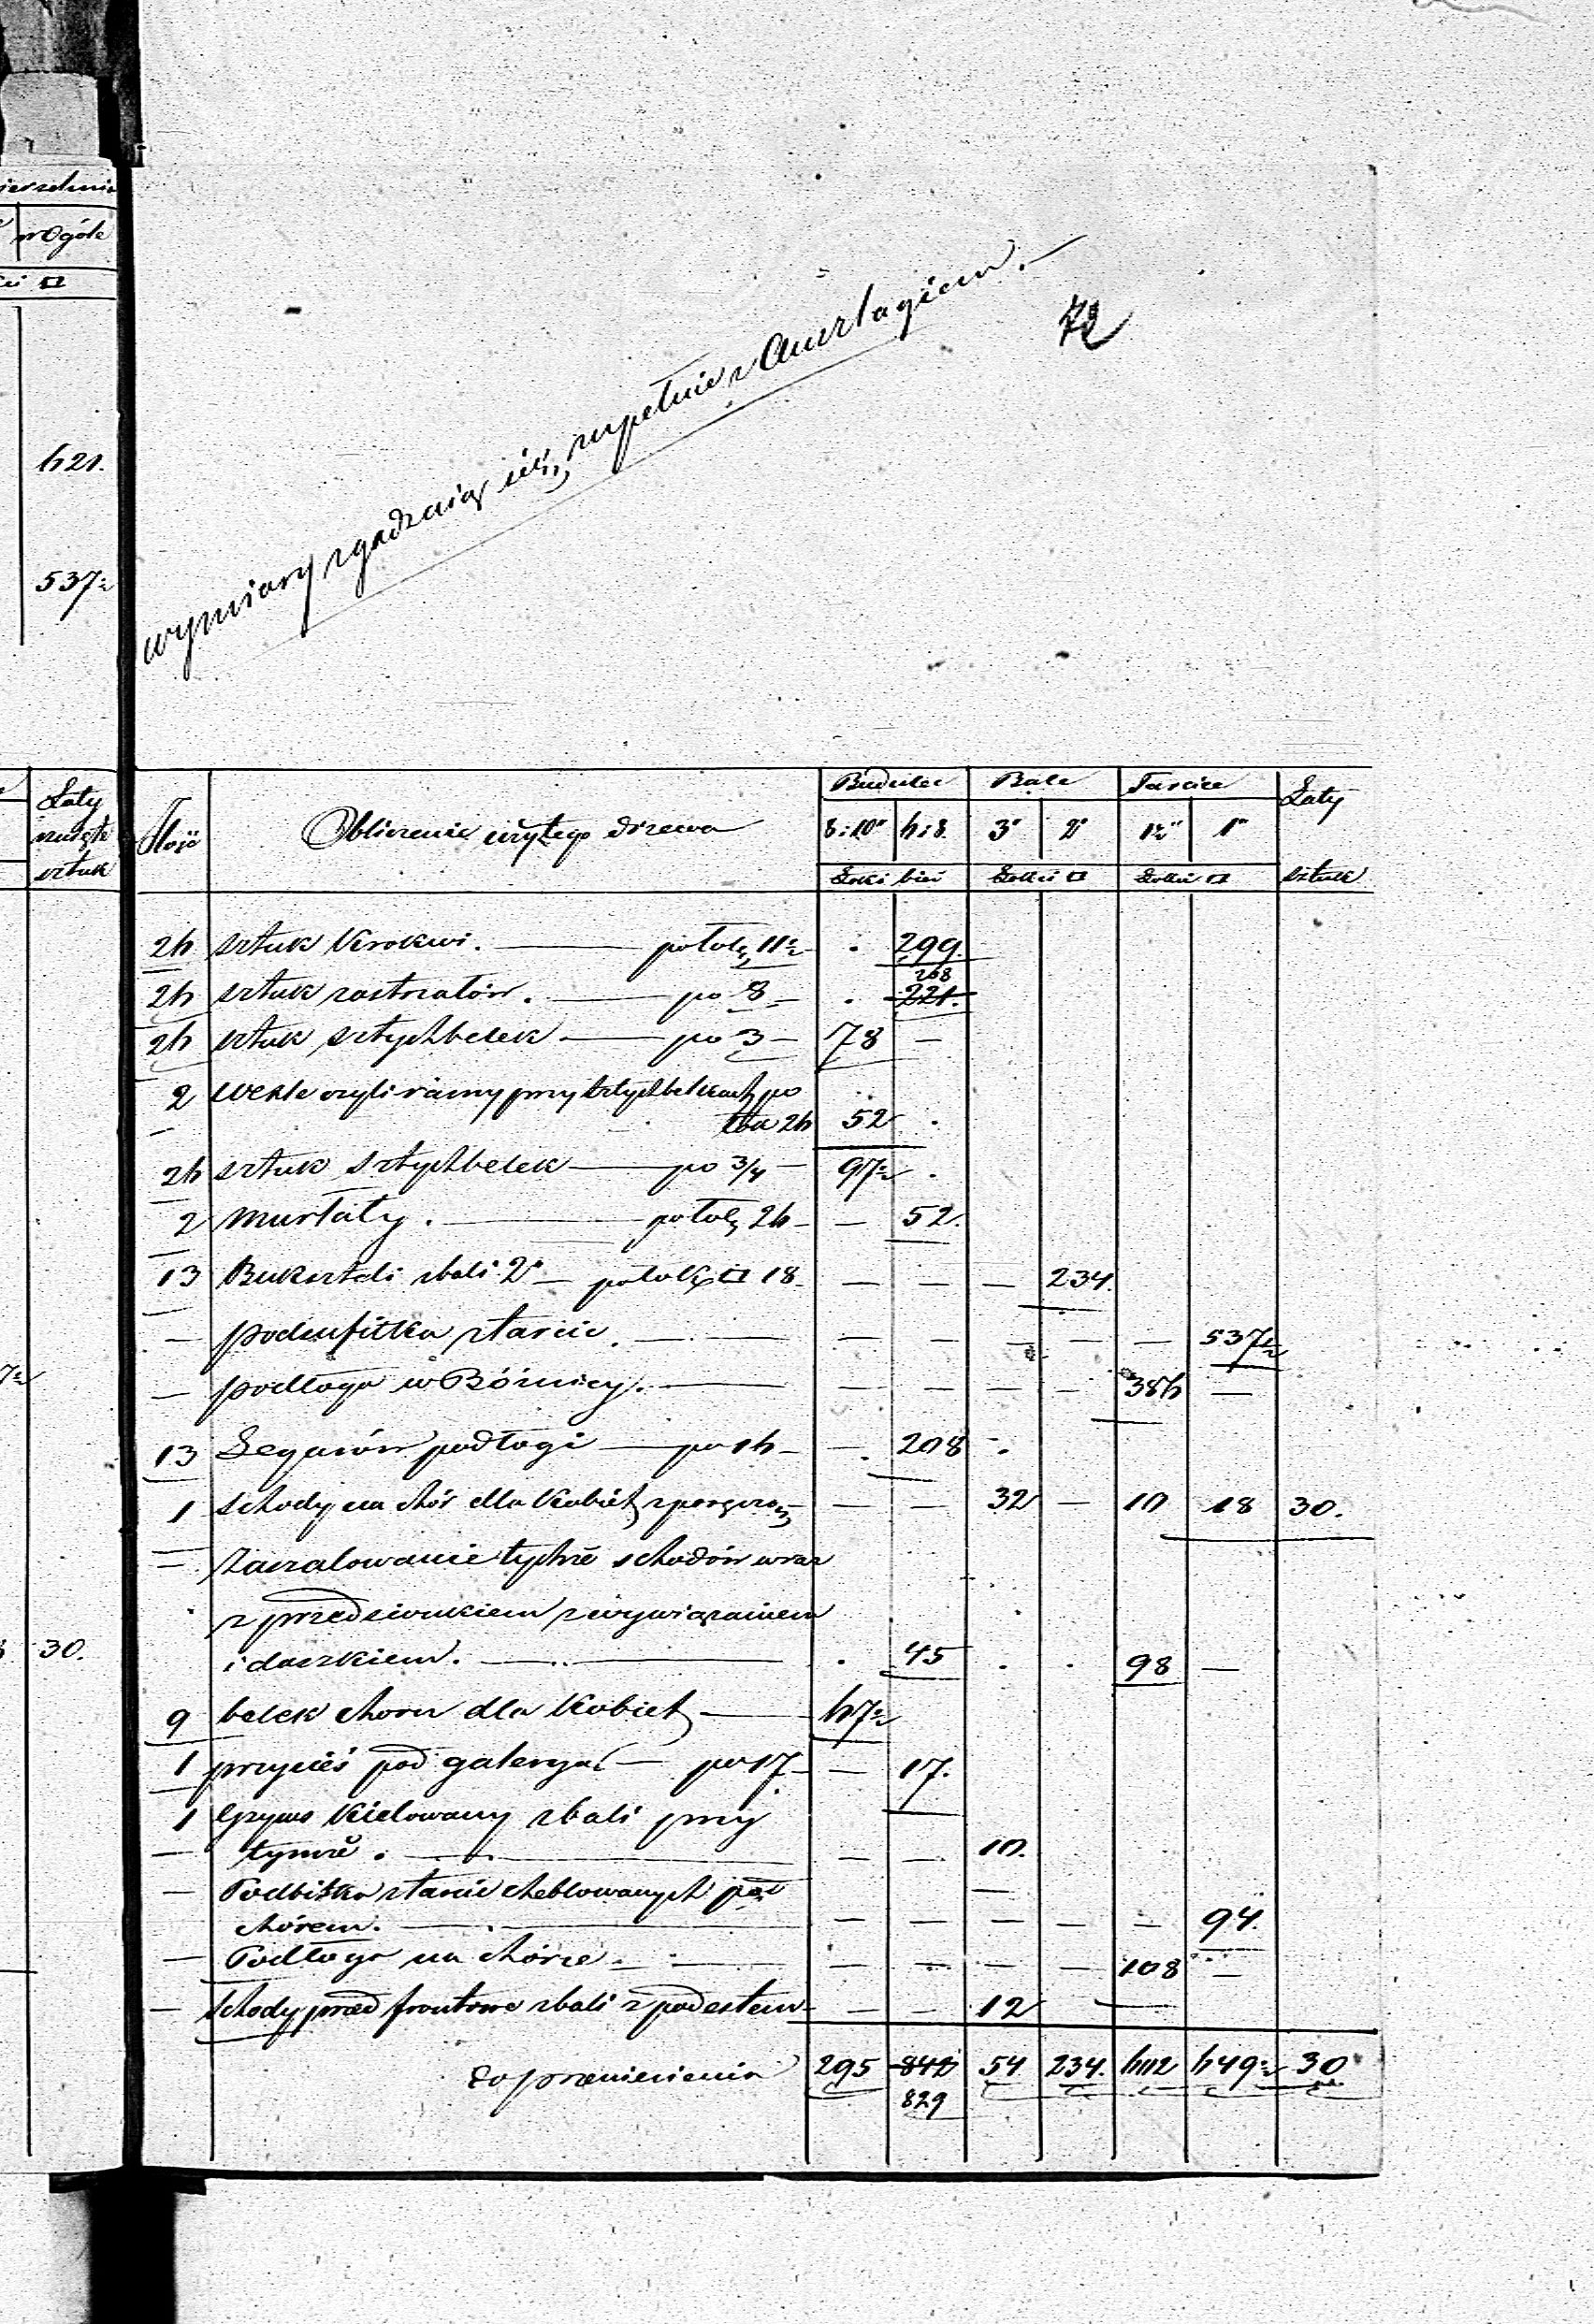 72
wymiary zgadzaią się zupełnie z Anszlagiem.
wogóle
621.
537½
30.
Łaty
sztuk
Ilość
Obliczenie użytego drzewa
Budulec
Bale
Tarcice
Łaty
8 i 10" 6 i 8. 3" 2" 1½" 1"
Łokci bież Łokci □ Łokci □ sztuk
26 sztuk Krokwi. — po łok 11½ . 299.
208
26 sztuk zastrzałów. — po 8 — . 221.
26 sztuk sztychbelek — po 3 — 78 —
2 czyli ramy przy sztychbelkach po
łok 26 52 .
26 sztuk sztychbelek — po 3¾ — 97½ .
2 Murłaty. — po łok 26 — — 52.
13 Bukszteli z bali 2" — po łok □ 18 — — — 234.
— podsufitka z tarcic. — — — — — — 537½
— podłoga w Bóżnicy. — — — — — 386 —
13 Legarów podłogi — po 16 — — 208 .
1 Schody na chór dla Kobiet z poręczą — — 32 — 10 18 30.
= Zaszalowanie tychże schodów wraz
z przedsionkiem z wywiązaniem
i daszkiem. — . 45 . . 98 —
9 belek choru dla Kobiet — 67½
1 przycieś pod galeryą — po 17 — — 17.
1 Gzyms Kielowany z bali przy
— tymże. — — — 10.
— Podbitka z tarcic cheblowanych pod —
chórem. — — — — — — 94.
— Podłoga na chórze. — — — — — 108 —
— Schody przed frontowe z bali z podestem — — — 12 —
Do przeniesienia 295 842 54 234. 602 649½ 30
829